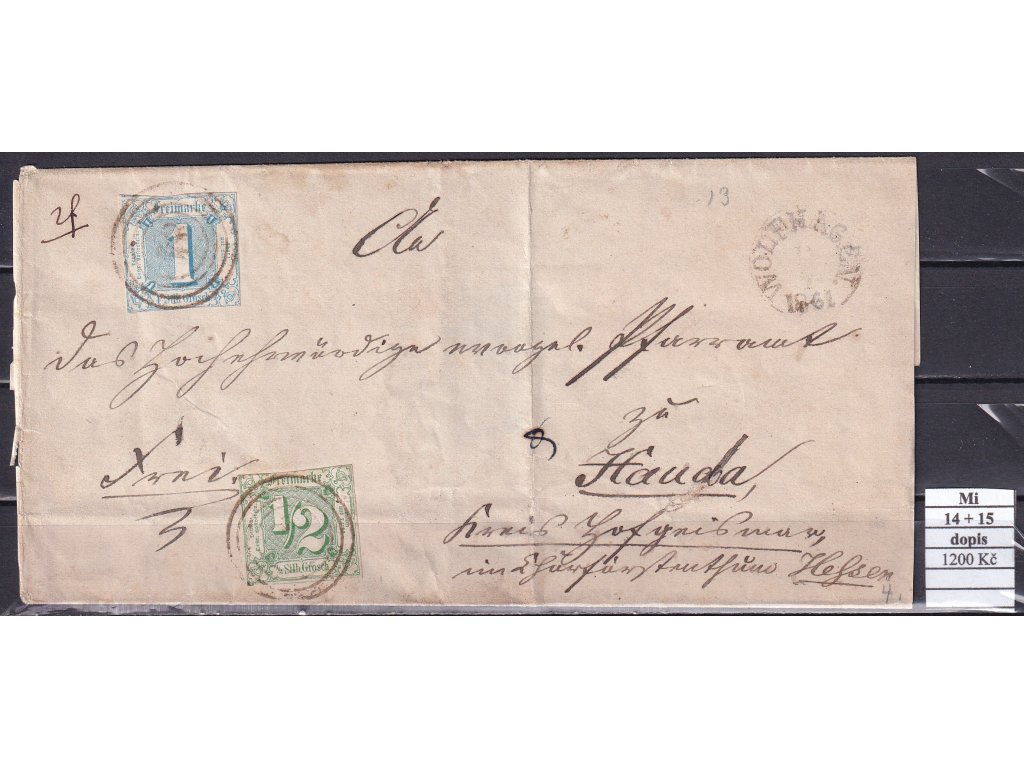 13
An
WOLFHAGEN
1861
Freimarke
1
1 Silb. Grosch.
das Hochehrwürdige evangel. Pfarramt
zu
Frei.
Hauda,
Freimarke
1/2
½ Silb. Grosch.
Kreis Hofgeismar,
im Churfürstenthum Hessen
4.
Mi
14 + 15
dopis
1200 Kč